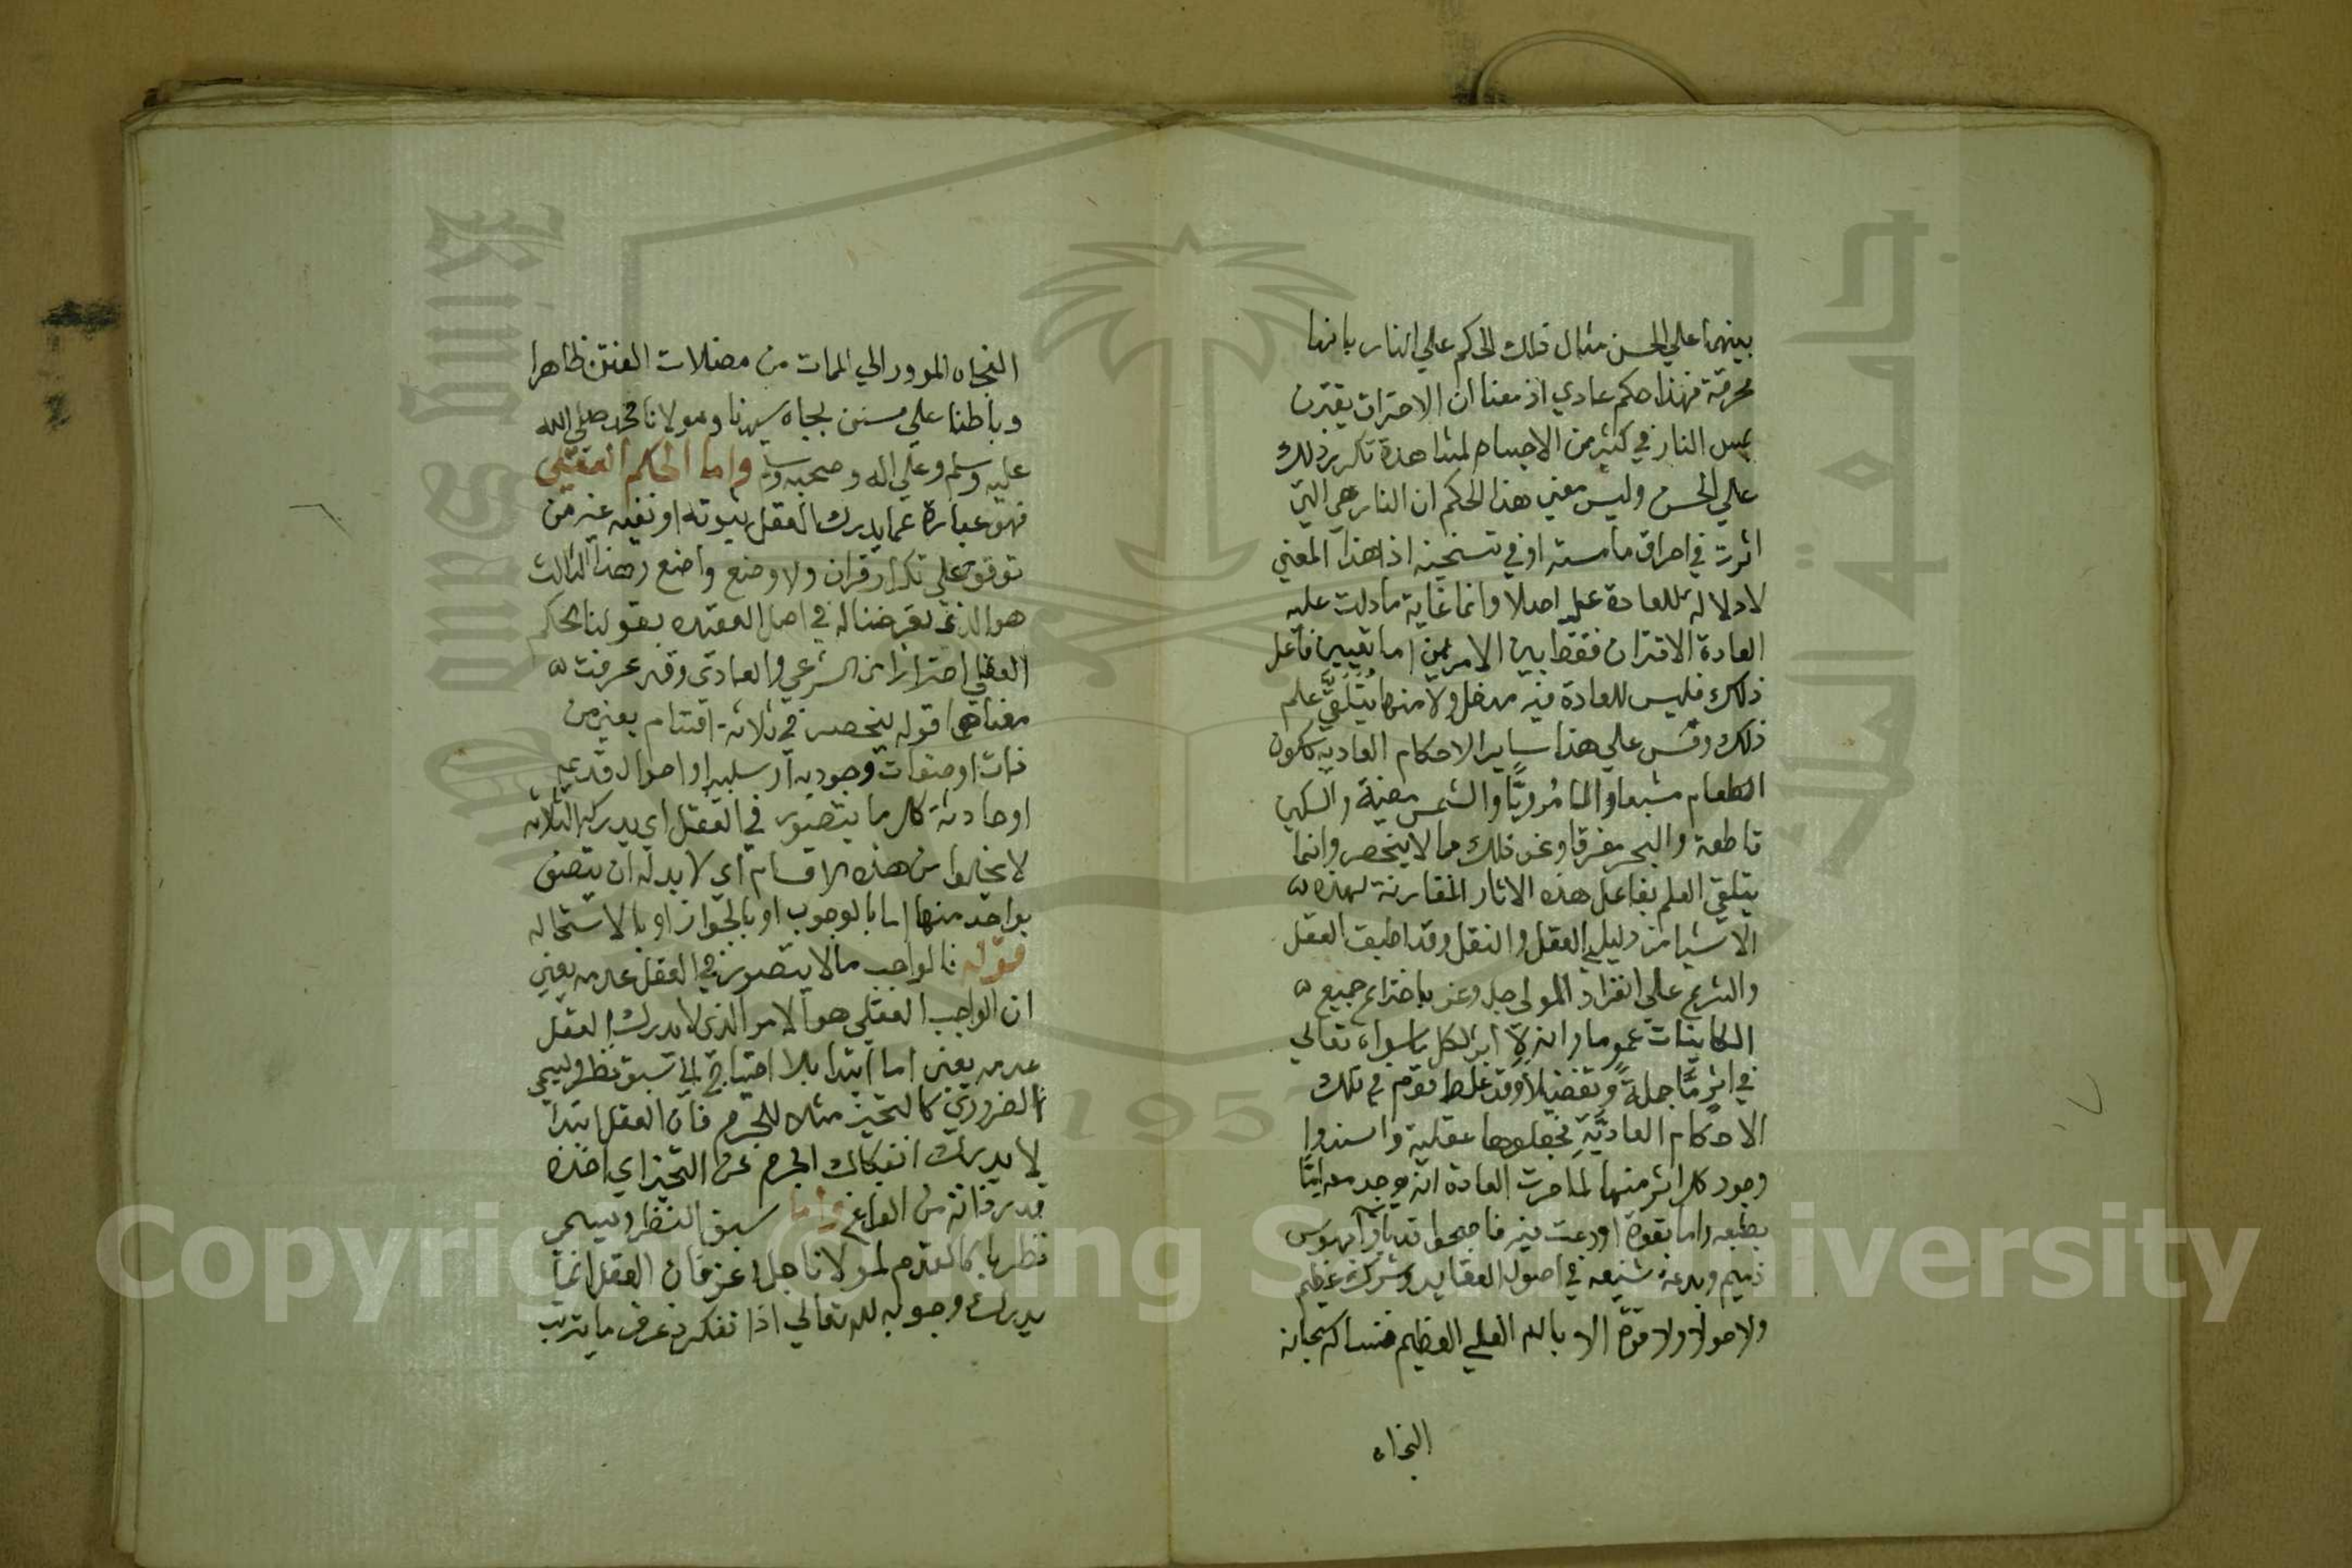 بينهما علي الحس مثال ذلك الحكم علي النار بانها
محرقة فهذا حكم عادي اذ معناه ان الاحتراق يقترن
بمس النار في كثير من الاجسام لمشاهدة تكرر ذلك
علي الحس وليس معني هذا الحكم ان النار هي التي
اثرت في احراق ما مسته او في تسخينه اذ هذا المعني
لا دلالة للعادة عليه اصلا وانما غاية ما دلت عليه
العادة الاقتران فقط بين الامرين اما تعيين فاعل
ذلك فليس للعادة فيه مدخل ولا منها يُتَلَقَّي علم
ذلك وقس علي هذا ساير الاحكام العادية ككون
الطعام مشبعا والما مُرويًا والشمس مضيئة والسكين
قاطعة والبحر مغرقا ونحو ذلك مما لا ينحصر وانما
يتلقي العلم بفاعل هذه الاثار المقارنة لهذه
الاشيا من دليلي العقل والنقل وقد اطبق العقل
والشرع علي انفراد المولي جل وعز باختراع جميع
الكاينات عموما وانه لا اثر لكل ما سواه تعالي
في اثرٍ مَّا جملةً وتفصيلا وقد غلط قوم في تلك
الاحكام العاديَّةِ فجعلوها عقلية واسندوا
وجود كل اثر منها لما جرت العادة انه يوجد معه امَّا
بطبعه واما بقوة اودعت فيه فاصبحوا قد باؤا بهوس
ذميم وبدعة شنيعه في اصول العقايد وشرك عظيم
ولا حول ولا قوة الا بالله العلي العظيم فنساله سبحانه
النجاه
النجاه المرور الي الممات من مضلات الفتن ظاهرا
وباطنا علي سنن بجاه سيدنا ومولانا محمد صلي الله
عليه وسلم وعلي اله وصحبه وسلم واما الحكم العقلي
فهو عبارة عما يدرك العقل ثبوته او نفيه غير من
توقف علي تكرار قران ولا وضع واضع وهذا الثالث
هو الذي تعرضنا له في اصل العقيده بقولنا الحكم
العقلي احترازا من الشرعي والعادي وقد عرفت
معناهما قوله ينحصر في ثلاثة اقسام يعني من
ذات او صفات وجودية او سلبيه او احوال قديمة
او حادثة كل ما يتصور في العقل اي يدركه الثلاثه
لا يخلوا من هذه الاقسام اي لا بد له ان يتصف
بواحد منها اما بالوجوب او بالجواز او بالاستحاله
قوله فالواجب ما لا يتصور في العقل عدمه يعني
ان الواجب العقلي هو الامر الذي لا يدرك العقل
عدمه يعني اما ابتدا بلا احتياج الي سبق نظر ويسمي
الضروري كالتحيز مثلا للجرم فان العقل ابتدا
لا يدرك انفكاك الجرم عن التحيز اي اخذه
قدر ذاته من الفراغ واما سبق النظر ويسمي
نظريا كالقدم لمولانا جل وعز فان العقل انما
يدرك وجوبه لله تعالي اذا تفكر وعرف ما يترتب
Copyright © King Saud University
1957